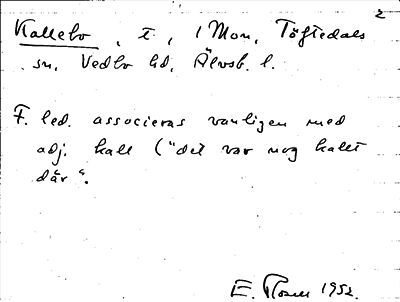 2
Kallebo, t, 1 Mon, Töftedals
sn, Vedbo hd, Älvsb. l.
F. led. associeras vanligen med
adj. kall ("det var nog kallt
där".
E. 1952.